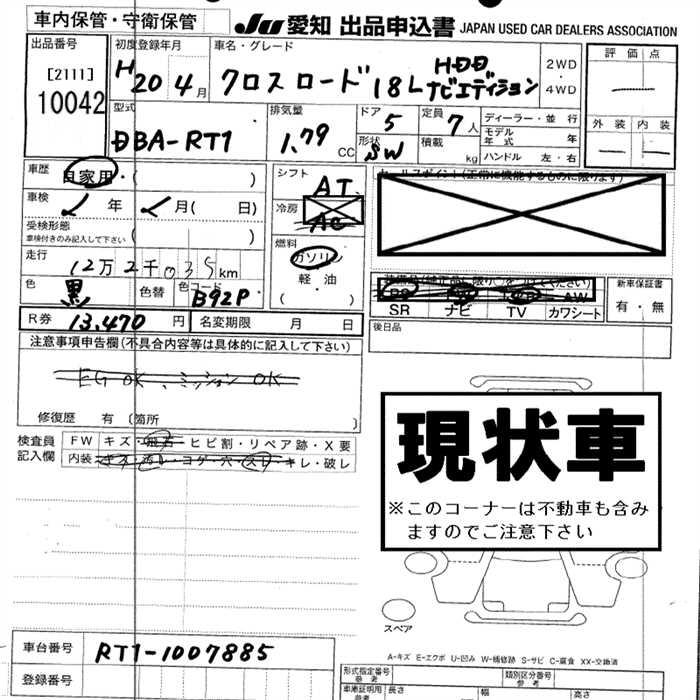 車内保管・守衛保管
JU 愛知 出品申込書 JAPAN USED CAR DEALERS ASSOCIATION
出品番号
[2111]
10042
初度登録年月
H20 4月
車名・グレード
クロスロード 18L HDD
ナビエディション
2WD
・
4WD
評価点
外装 内装
型式
DBA-RT1
排気量
1.79 CC
ドア
5
形状
SW
定員
7人
積載
kg
ディーラー・並行
モデル
年式 年
ハンドル 左・右
車歴
自家用・( )
車検
年 月( 日)
受検形態
車検付きのみ記入して下さい ( )
走行
12万2千035km
色
黒
色替
色コード
B92P
シフト
AT
冷房
AC
燃料
ガソリン
軽・油
( )
セールスポイント(正常に機能するものに限ります)
SR ナビ TV カワシート
AW
新車保証書
有・無
R券 13,470 円 名変期限 月 日
後日品
注意事項申告欄(不具合内容等は具体的に記入して下さい)
EG OK、ミッション OK
修復歴 有〔箇所 〕
検査員
記入欄
FW キズ・飛石・ヒビ割・リペア跡・X要
内装 キズ・汚レ・コゲ・穴・スレ・キレ・破レ
現状車
※このコーナーは不動車も含み
ますのでご注意下さい
スペア
A-キズ E-エクボ U-凹み W-補修跡 S-サビ C-腐食 XX-交換済
車台番号 RT1-1007885
登録番号
形式指定番号
参考
類別区分番号
参考
車庫証明用
参考
長さ 幅 高さ